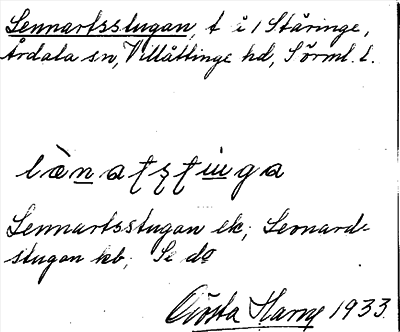 Lennartsstugan, t å 1 Ståringe,
Årdala sn, Villåttinge hd, Sörml. l.
Lennartsstugan ek; Leonard-
stugan kb; Se do
Gösta Harne 1933